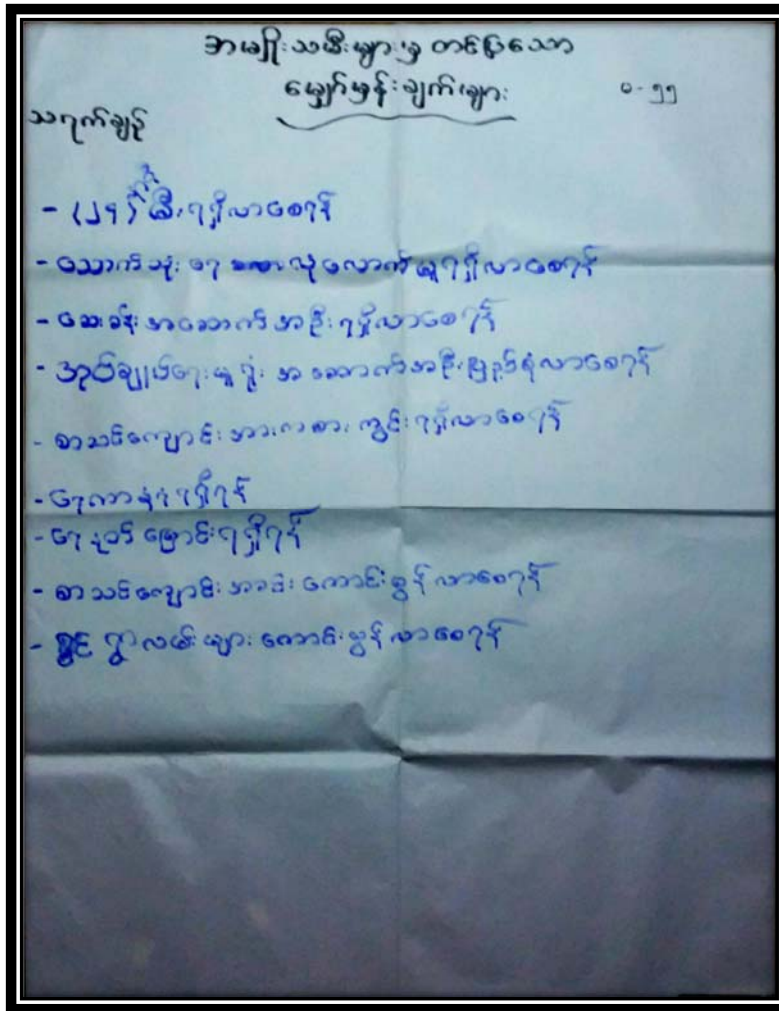 အမျိုးသမီးများမှ တင်ပြသော
မျှော်မှန်းချက်များ ၀-၅၅
သရက်ချဉ်
- (၂၄) နာရီ မီးရရှိလာစေရန်
- သောက်သုံးရေ လုံလောက်စွာရရှိလာစေရန်
- ဆေးခန်းအဆောက်အဦးရရှိလာစေရန်
- အုပ်ချုပ်ရေးမှူးရုံး အဆောက်အဦးပြည့်စုံလာစေရန်
- စာသင်ကျောင်းအားကစားကွင်းရရှိလာစေရန်
- ရေကာ ရရှိရန်
- ရေနုတ်မြောင်းရရှိရန်
- စာသင်ကျောင်း ကောင်းမွန်လာစေရန်
- ရွာလမ်းများ ကောင်းမွန်လာစေရန်